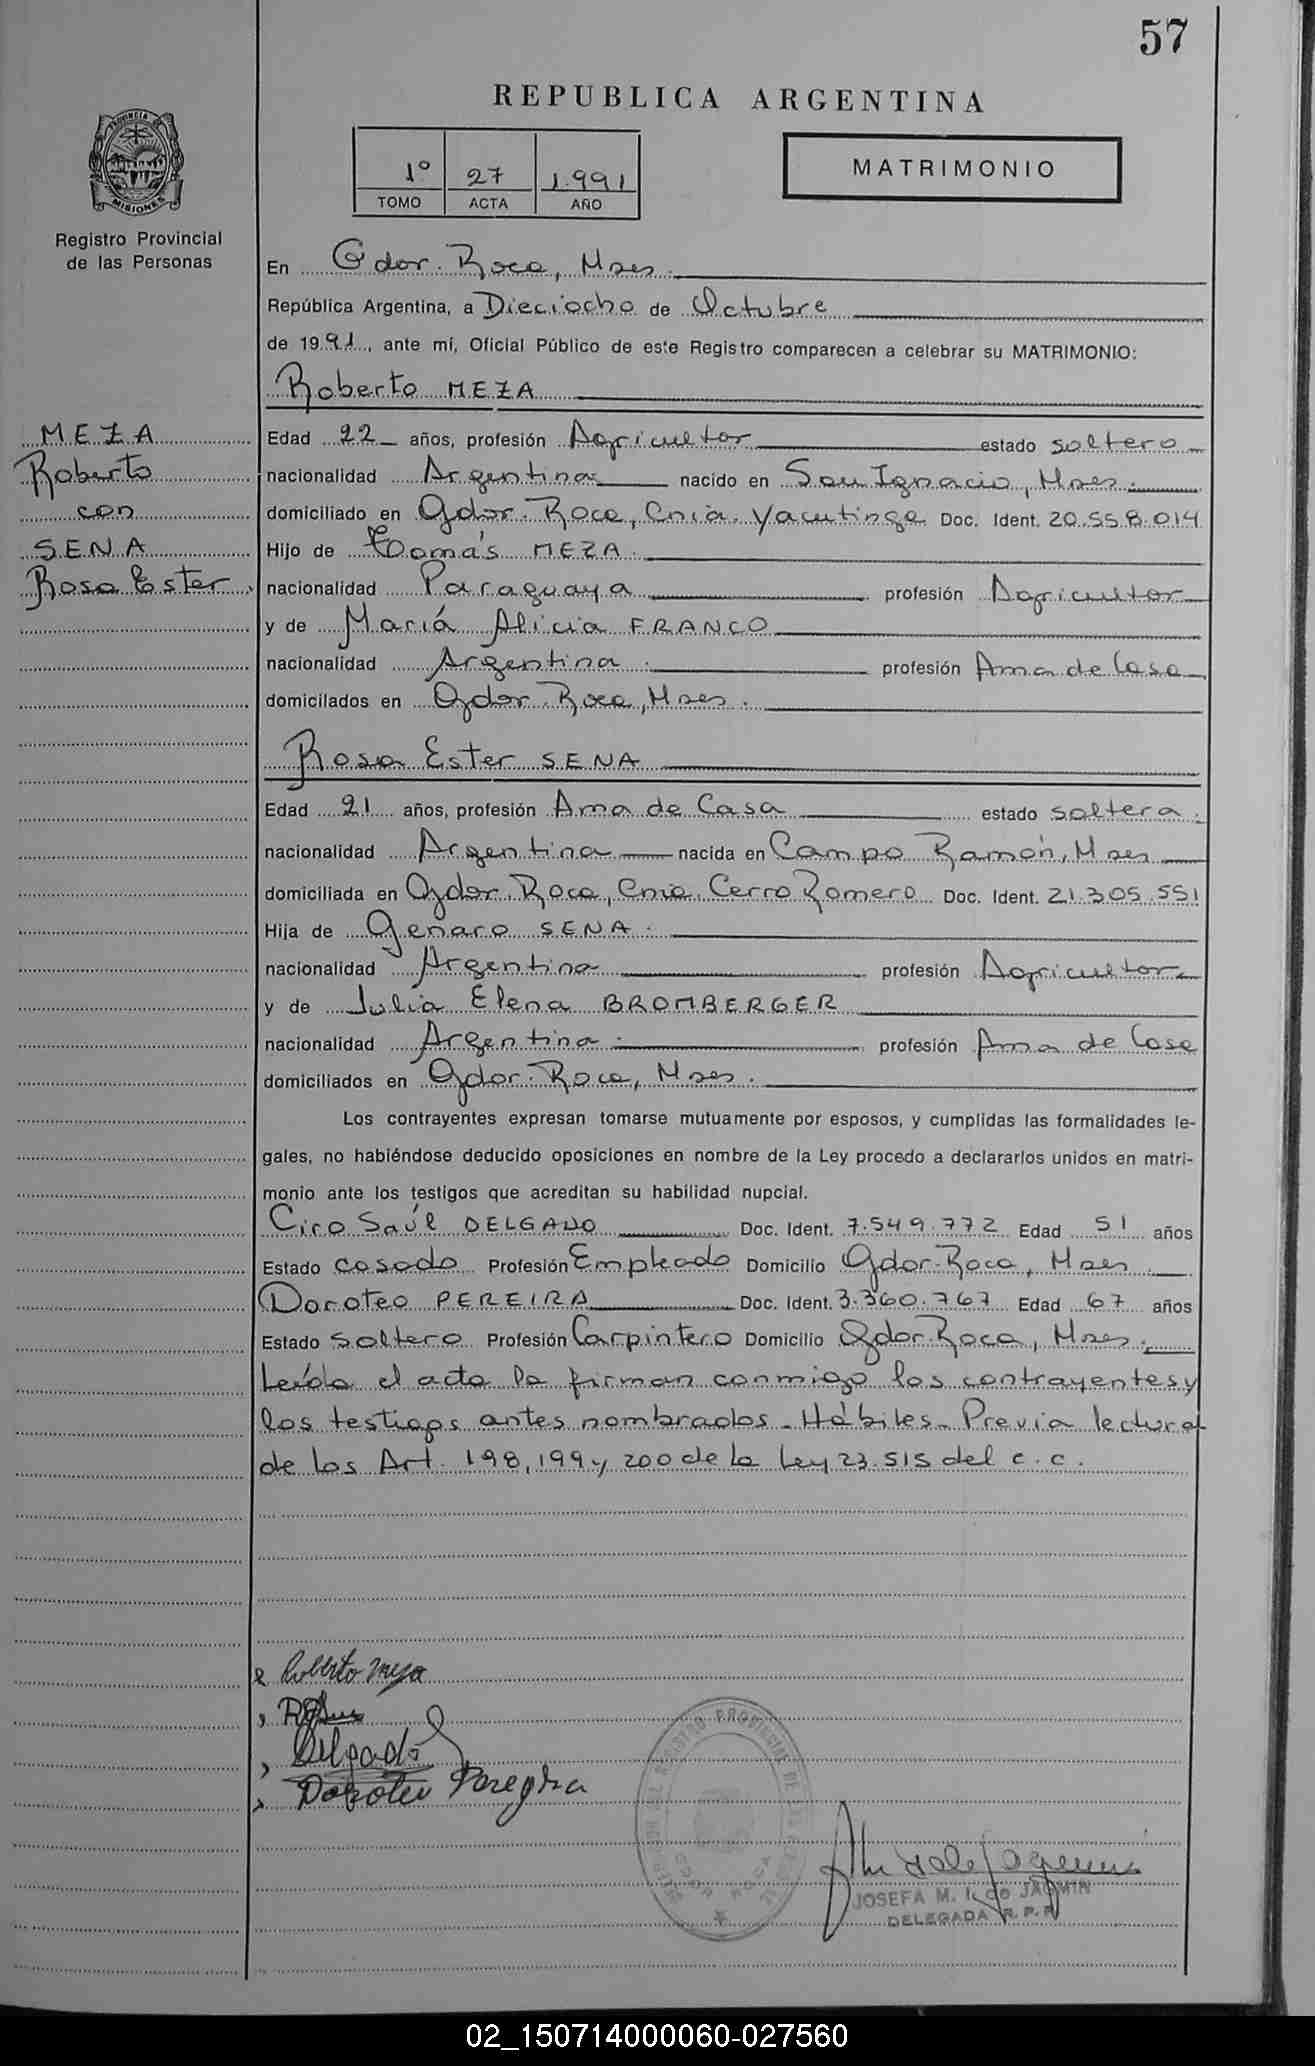 57
REPUBLICA ARGENTINA
PROVINCIA
MISIONES
Registro Provincial
de las Personas
1º 27 1.991
TOMO ACTA AÑO
MATRIMONIO
En Gdor. Roca, Mnes.
República Argentina, a Dieciocho de Octubre
de 1991, ante mí, Oficial Público de este Registro comparecen a celebrar su MATRIMONIO:
Roberto MEZA
MEZA
Roberto
con
SENA
Rosa Ester
Edad 22 años, profesión Agricultor estado soltero
nacionalidad Argentina nacido en San Ignacio, Mnes.
domiciliado en Gdor. Roca, Cnia. Yacutinga Doc. Ident. 20.558.014
Hijo de Tomás MEZA.
nacionalidad Paraguaya profesión Agricultor
y de Mariá Alicia FRANCO
nacionalidad Argentina. profesión Ama de Casa
domicilados en Gdor. Roca, Mnes.
Rosa Ester SENA
Edad 21 años, profesión Ama de Casa estado soltera.
nacionalidad Argentina nacida en Campo Ramón, Mnes
domiciliada en Gdor. Roca, Cnia. Cerro Romero Doc. Ident. 21.305.551
Hija de Genaro SENA.
nacionalidad Argentina profesión Agricultor
y de Julia Elena BROMBERGER
nacionalidad Argentina. profesión Ama de Casa
domiciliados en Gdor. Roca, Mnes.
Los contrayentes expresan tomarse mutuamente por esposos, y cumplidas las formalidades le-
gales, no habiéndose deducido oposiciones en nombre de la Ley procedo a declararlos unidos en matri-
monio ante los testigos que acreditan su habilidad nupcial.
Ciro Saúl DELGADO Doc. Ident. 7.549.772 Edad 51 años
Estado casado Profesión Empleado Domicilio Gdor. Roca, Mnes.
Doroteo PEREIRA Doc. Ident. 3.360.767 Edad 67 años
Estado soltero Profesión Carpintero Domicilio Gdor. Roca, Mnes.
Leída el acta la firman conmigo los contrayentes y
los testigos antes nombrados - Hábiles - Previa lectura
de los Art. 198, 199 y 200 de la Ley 23.515 del c.c.
Roberto Meza
Delgado
Doroteo
REGISTRO PROVINCIAL DE LAS
GDOR ROCA
JOSEFA M. I. de JACMIN
DELEGADA R. P. P.
02_150714000060-027560